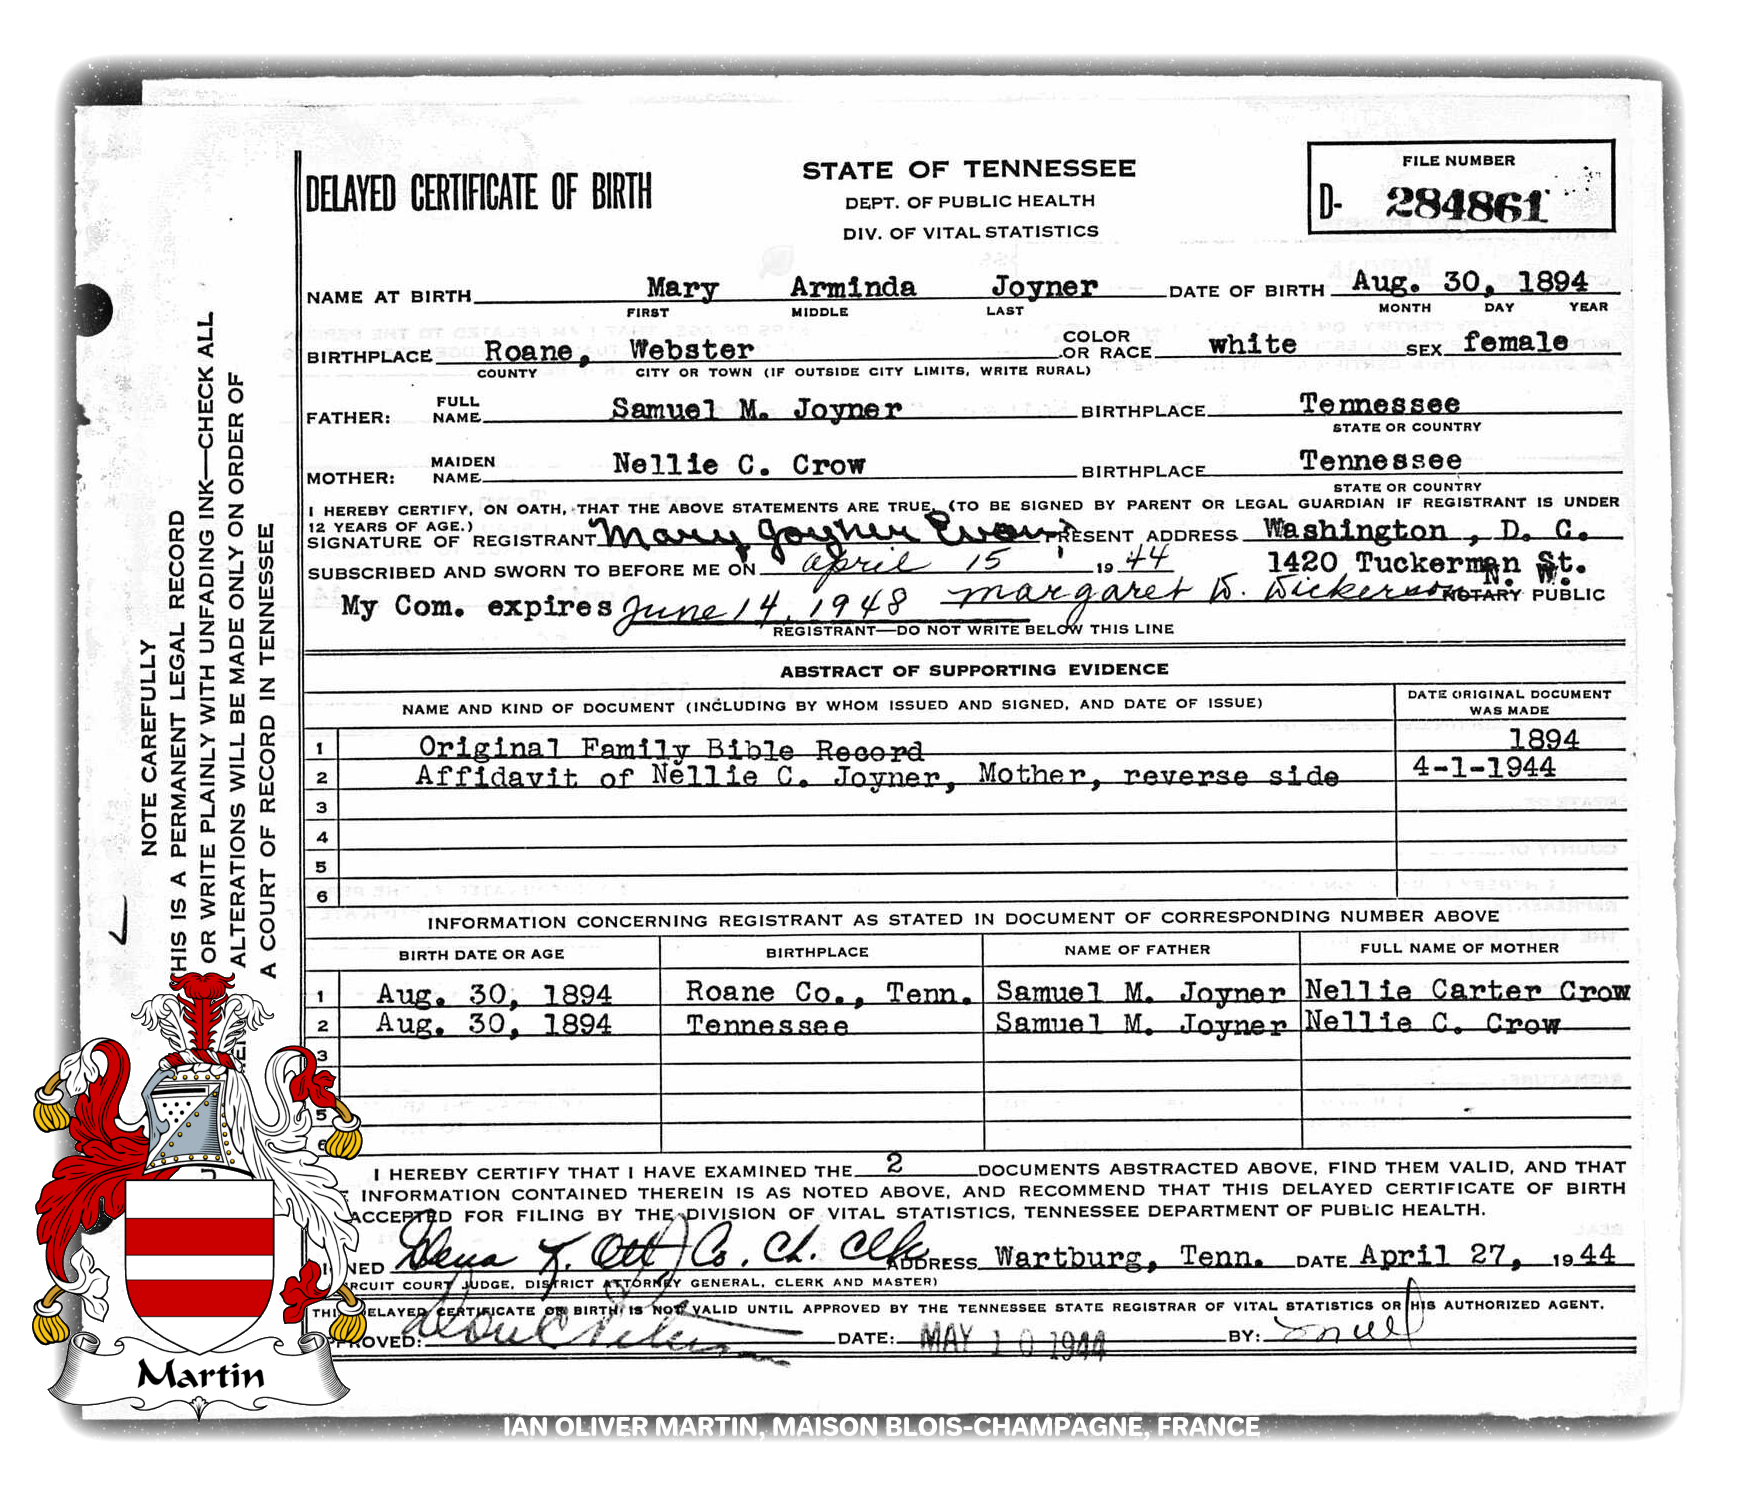 DELAYED CERTIFICATE OF BIRTH
STATE OF TENNESSEE
DEPT. OF PUBLIC HEALTH
DIV. OF VITAL STATISTICS
FILE NUMBER
D- 284861
NAME AT BIRTH Mary Arminda Joyner DATE OF BIRTH Aug. 30, 1894
FIRST MIDDLE LAST MONTH DAY YEAR
BIRTHPLACE Roane, Webster COLOR OR RACE white SEX female
COUNTY CITY OR TOWN (IF OUTSIDE CITY LIMITS, WRITE RURAL)
FATHER: FULL NAME Samuel M. Joyner BIRTHPLACE Tennessee
STATE OR COUNTRY
MOTHER: MAIDEN NAME Nellie C. Crow BIRTHPLACE Tennessee
STATE OR COUNTRY
I HEREBY CERTIFY, ON OATH, THAT THE ABOVE STATEMENTS ARE TRUE. (TO BE SIGNED BY PARENT OR LEGAL GUARDIAN IF REGISTRANT IS UNDER
12 YEARS OF AGE.)
SIGNATURE OF REGISTRANT Mary Joyner Evans PRESENT ADDRESS Washington, D. C.
SUBSCRIBED AND SWORN TO BEFORE ME ON April 15, 1944 1420 Tuckerman St.
N. W.
My Com. expires June 14, 1948 Margaret W. Dickerson NOTARY PUBLIC
REGISTRANT—DO NOT WRITE BELOW THIS LINE
ABSTRACT OF SUPPORTING EVIDENCE
NAME AND KIND OF DOCUMENT (INCLUDING BY WHOM ISSUED AND SIGNED, AND DATE OF ISSUE) DATE ORIGINAL DOCUMENT WAS MADE
1 Original Family Bible Record 1894
2 Affidavit of Nellie C. Joyner, Mother, reverse side 4-1-1944
3
4
5
6
INFORMATION CONCERNING REGISTRANT AS STATED IN DOCUMENT OF CORRESPONDING NUMBER ABOVE
BIRTH DATE OR AGE BIRTHPLACE NAME OF FATHER FULL NAME OF MOTHER
1 Aug. 30, 1894 Roane Co., Tenn. Samuel M. Joyner Nellie Carter Crow
2 Aug. 30, 1894 Tennessee Samuel M. Joyner Nellie C. Crow
3
5
6
I HEREBY CERTIFY THAT I HAVE EXAMINED THE 2 DOCUMENTS ABSTRACTED ABOVE, FIND THEM VALID, AND THAT
INFORMATION CONTAINED THEREIN IS AS NOTED ABOVE, AND RECOMMEND THAT THIS DELAYED CERTIFICATE OF BIRTH
ACCEPTED FOR FILING BY THE DIVISION OF VITAL STATISTICS, TENNESSEE DEPARTMENT OF PUBLIC HEALTH.
Co. Ct. Clk ADDRESS Wartburg, Tenn. DATE April 27, 1944
COURT JUDGE, DISTRICT ATTORNEY GENERAL, CLERK AND MASTER)
THIS DELAYED CERTIFICATE OF BIRTH IS NOT VALID UNTIL APPROVED BY THE TENNESSEE STATE REGISTRAR OF VITAL STATISTICS OR HIS AUTHORIZED AGENT.
DATE: MAY 10 1944 BY:
NOTE CAREFULLY
THIS IS A PERMANENT LEGAL RECORD
OR WRITE PLAINLY WITH UNFADING INK—CHECK ALL
ALTERATIONS WILL BE MADE ONLY ON ORDER OF
A COURT OF RECORD IN TENNESSEE
Martin
IAN OLIVER MARTIN, MAISON BLOIS-CHAMPAGNE, FRANCE